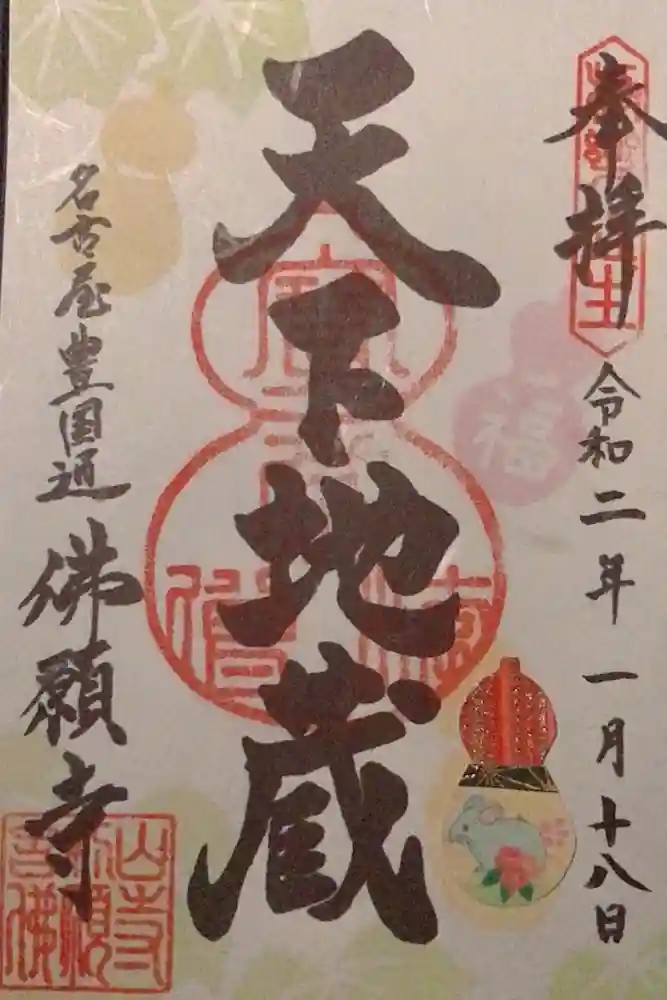 奉拝
令和二年一月十八日
福
天下地蔵
名古屋豊国通
佛願寺